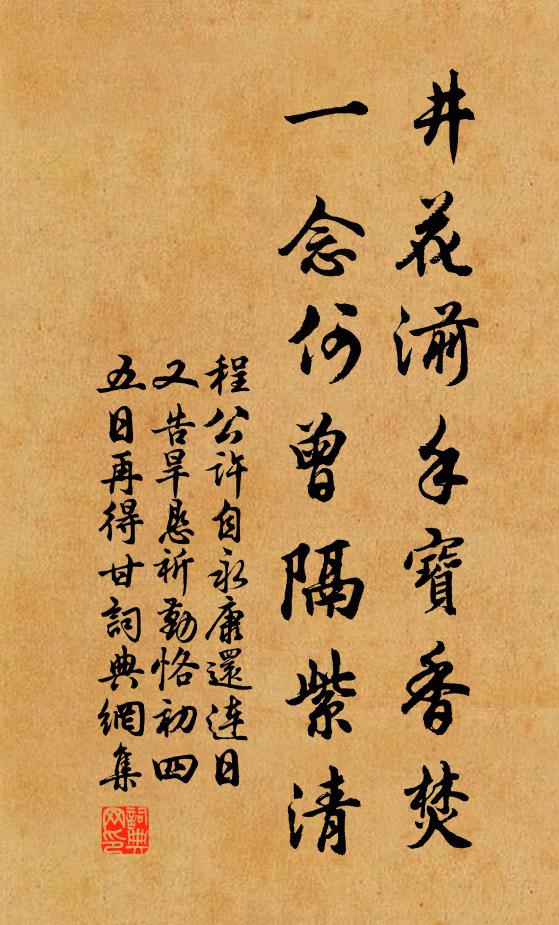 井花湔手寶香焚
一念何曾隔紫清
程公許自永康還连日
又告旱恳祈勤恪初四
五日再得甘詞典網集
詞典网印